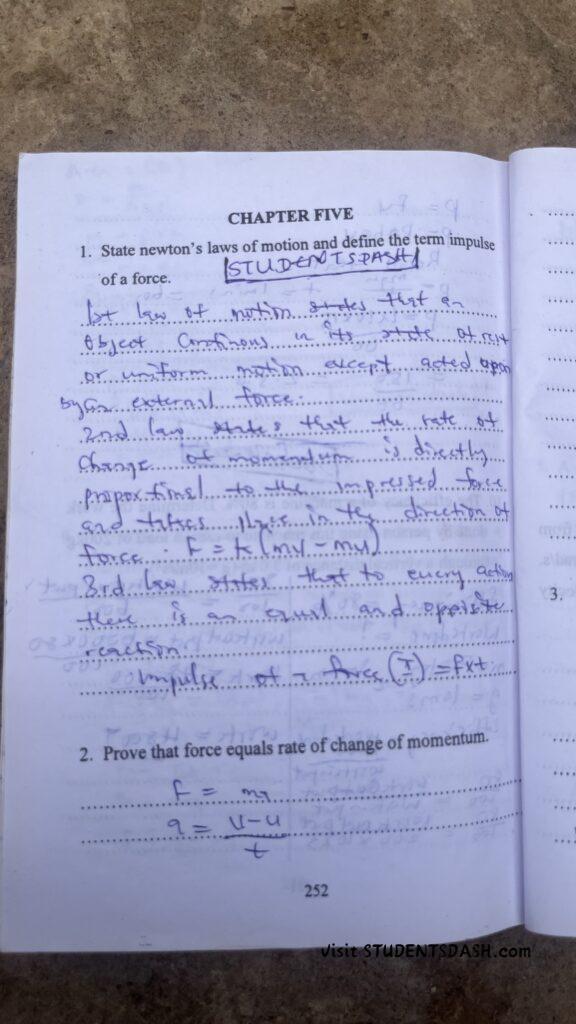 CHAPTER FIVE
1. State newton's laws of motion and define the term impulse
of a force.
STUDENTSDASH
1st law of motion states that an
object continous in its state of rest
or uniform motion except acted upon
by an external force.
2nd law states that the rate of
change of momentum is directly
proportional to the impressed force
and takes place in the direction of
force. F = k(mv - mu)
3rd law states that to every action
there is an equal and opposite
reaction
Impulse of a force (I) = fxt
3.
2. Prove that force equals rate of change of momentum.
F = ma
a = v-u
t
252
visit STUDENTSDASH.com